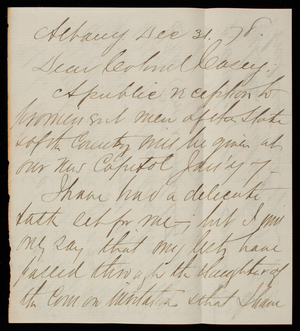 Albany Dec 31. 78.
Dear Colonel Casey,
A public reception to
prominent men of the State
& of the Country will be given at
our New Capitol Jan'y 7.
I have had a delicate
task set for me; but I
may say that my lists have
passed through the
the Com on Invitations & that I have